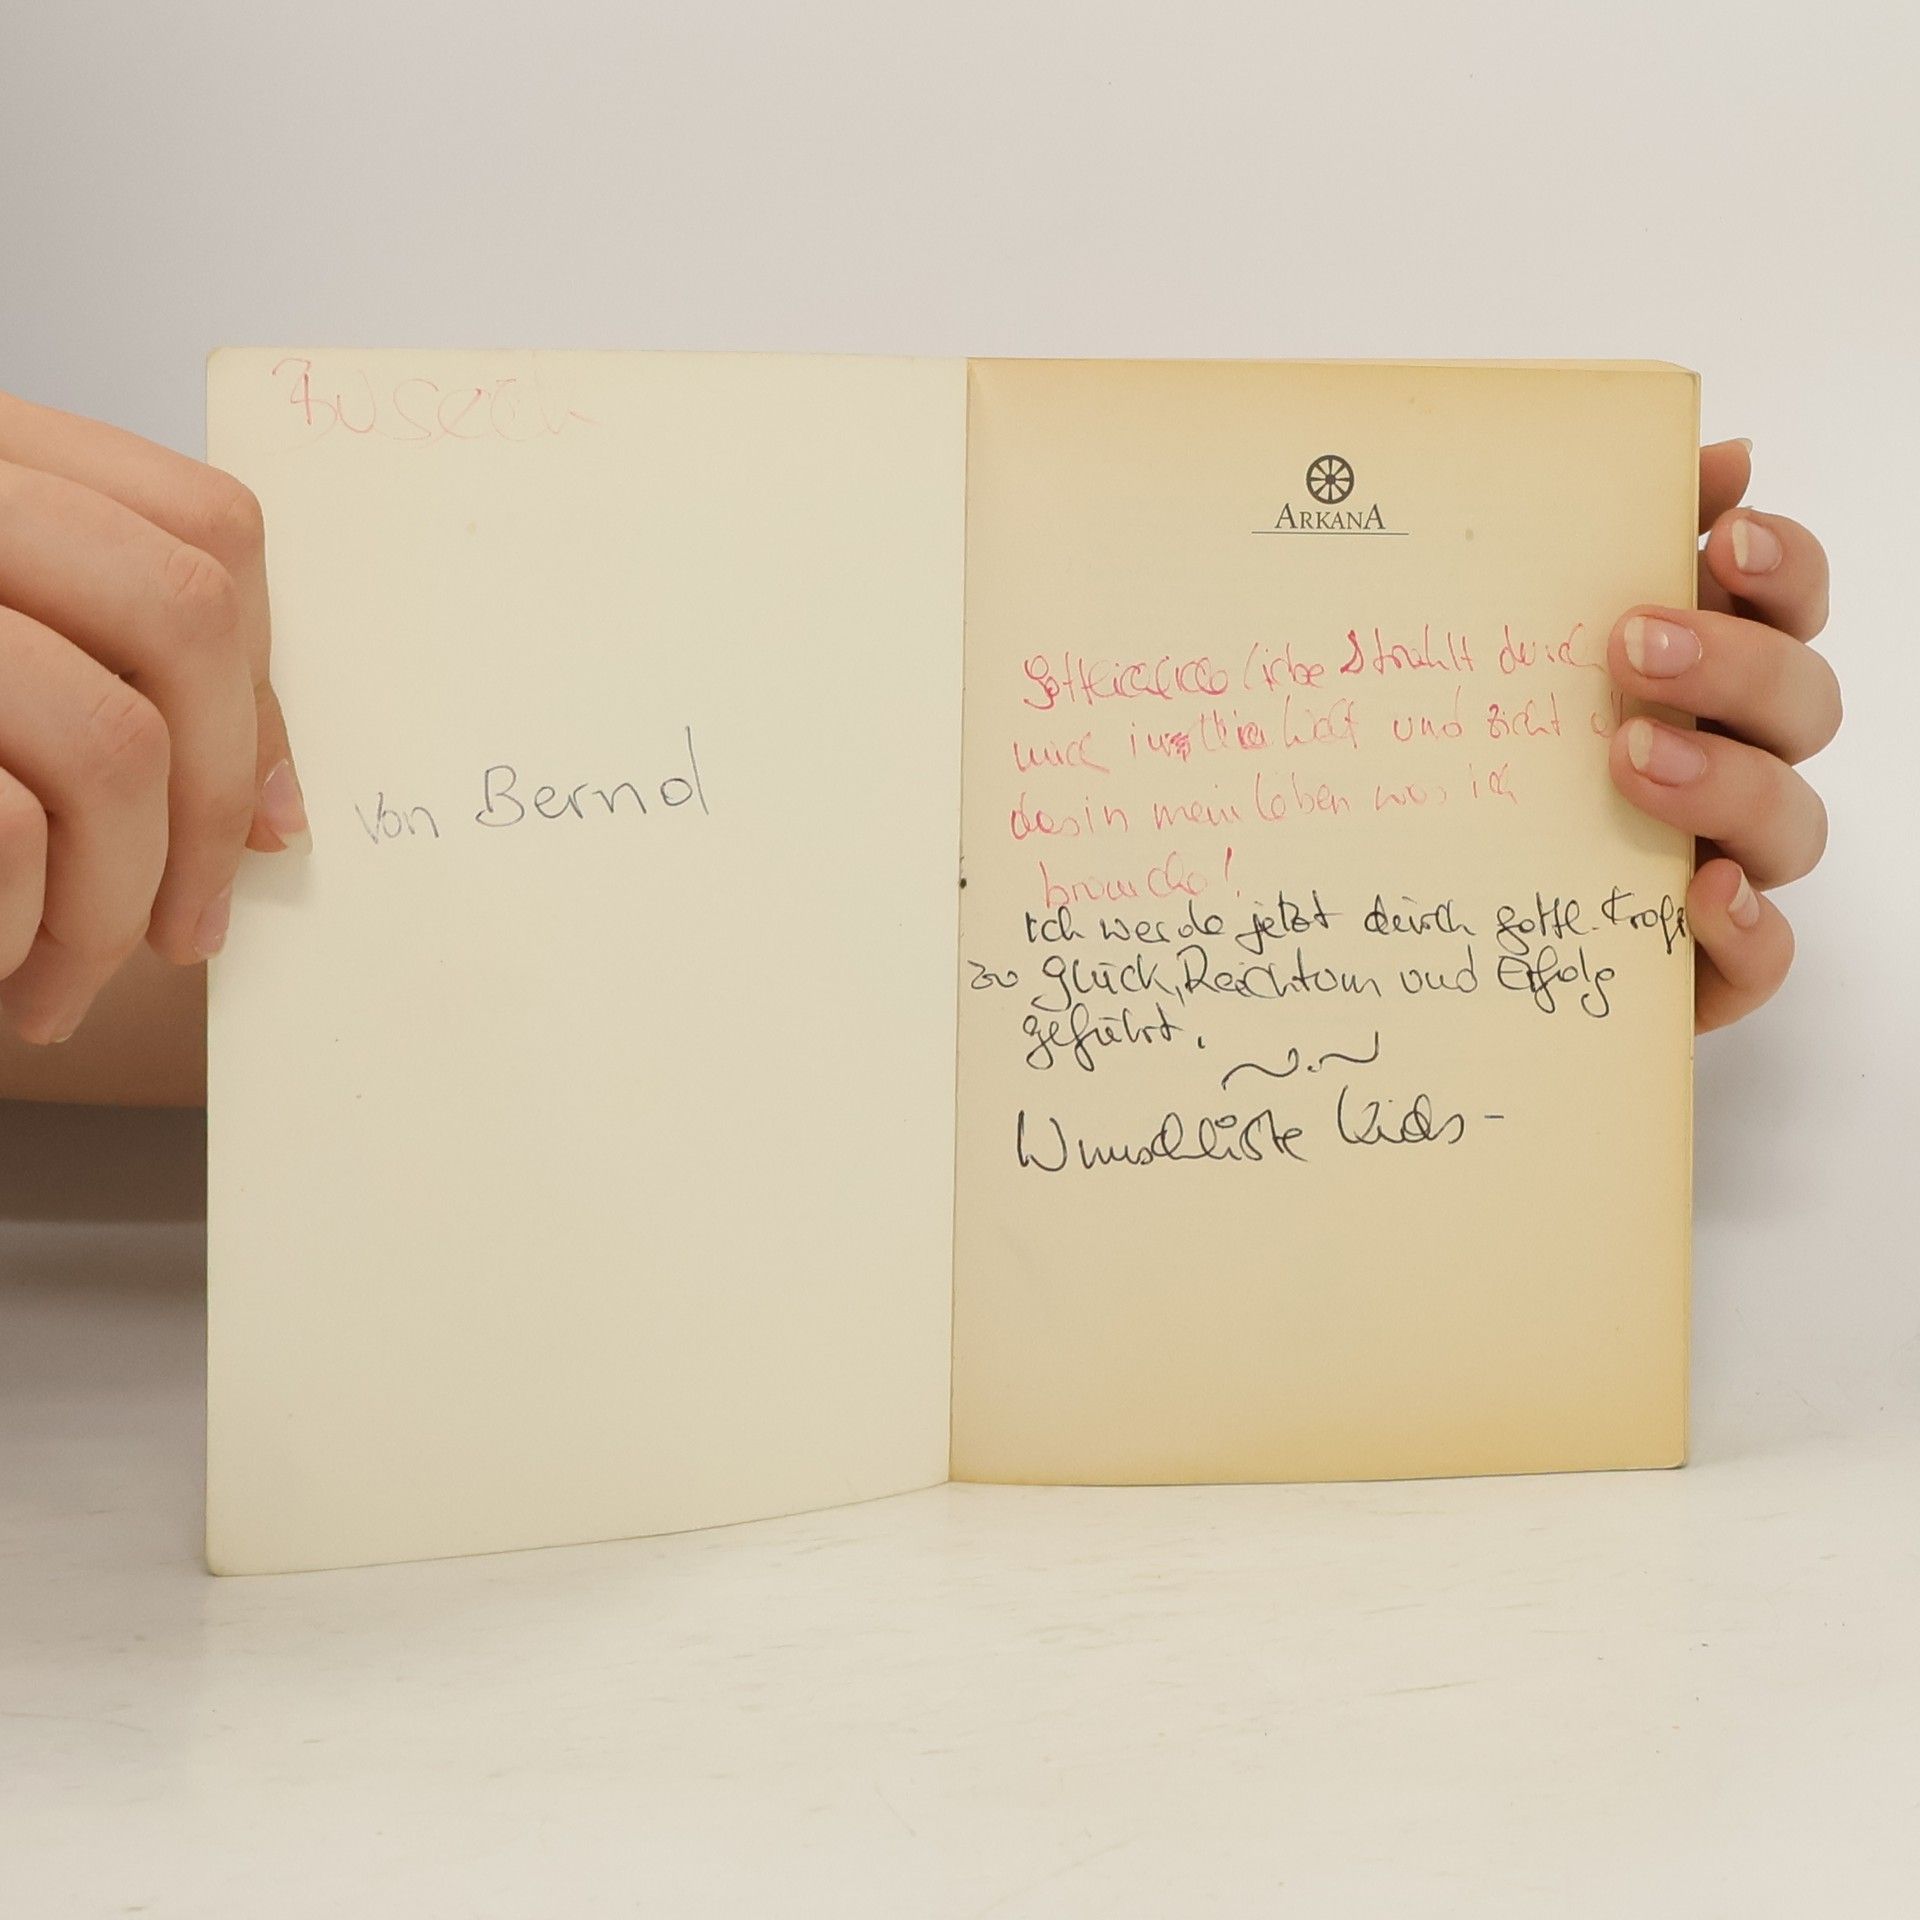 Buseck
von Bernd
ARKANA
Göttliche liebe Strahlt durch
mich in die Welt und zieht all
das in mein Leben was ich
brauche!
ich werde jetzt durch göttl. Kraft
zu Glück, Reichtum und Erfolg
geführt.
Wunschliste